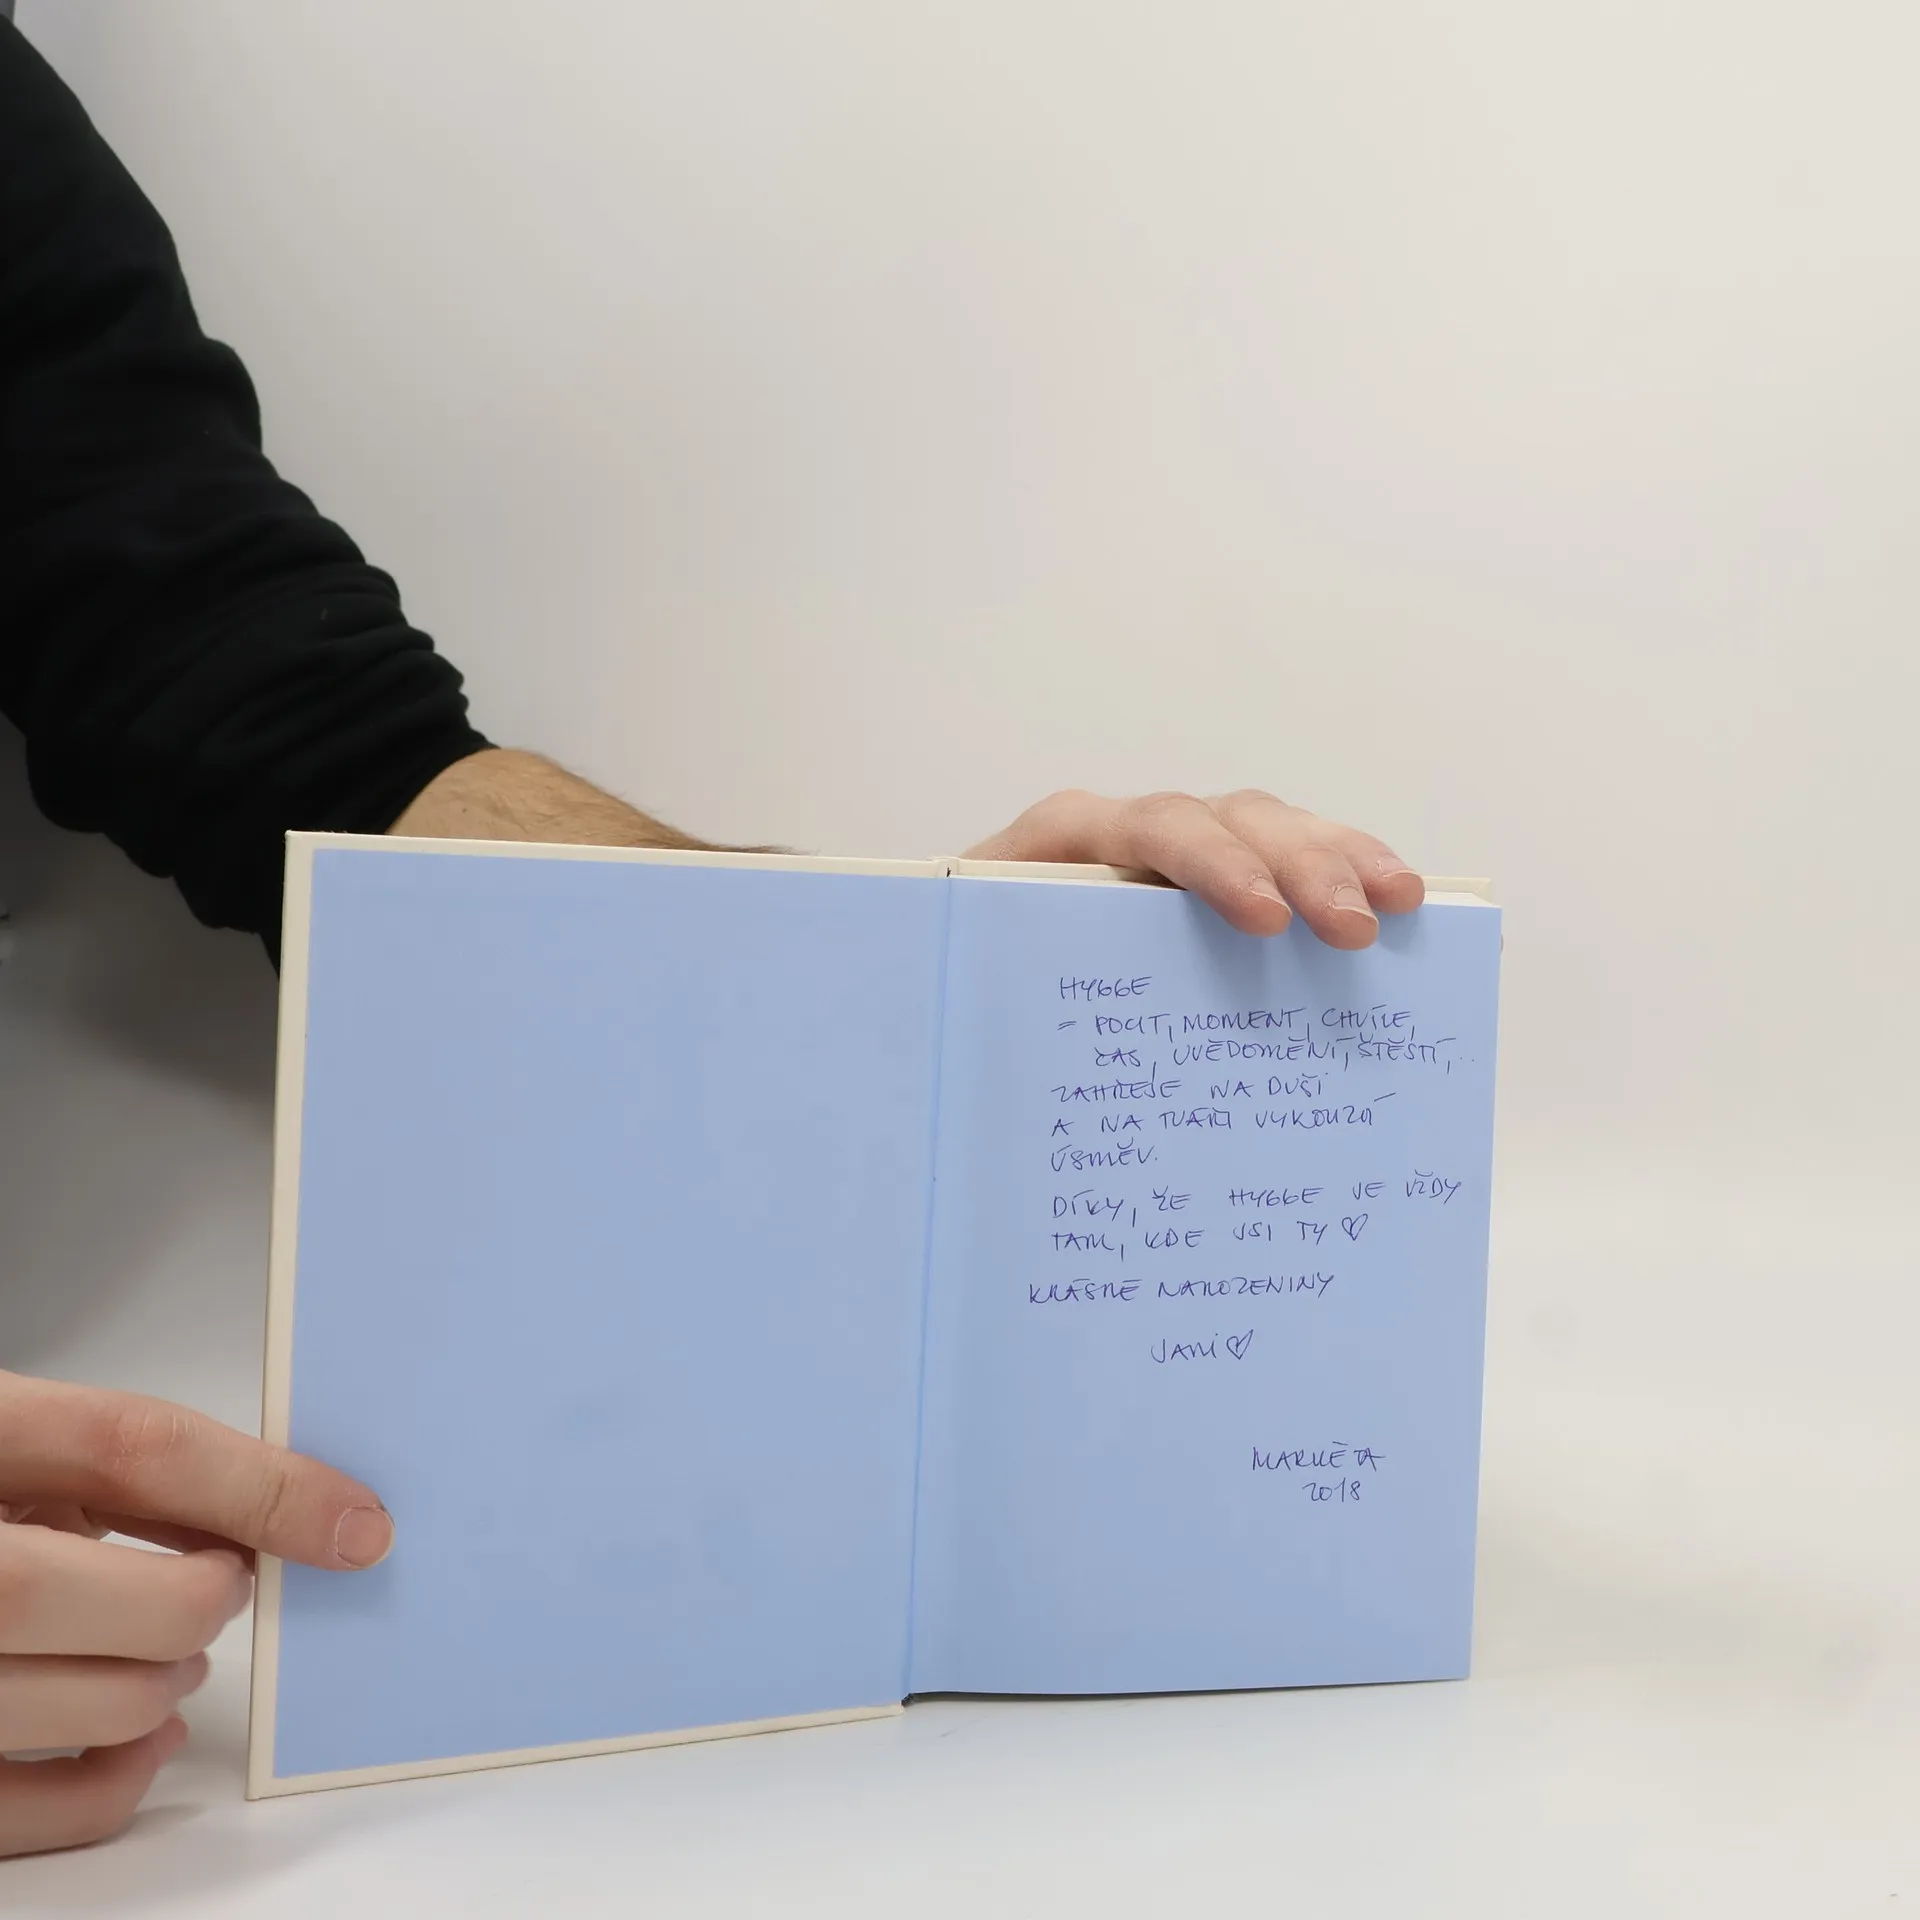 HYGGE
= POCIT, MOMENT, CHVÍLE,
ČAS, UVĚDOMĚNÍ, ŠTĚSTÍ,..
ZAHŘEJE NA DUŠI
A NA TVÁŘI VYKOUZLÍ
ÚSMĚV.
DÍKY, ŽE HYGGE JE VŽDY
TAM, KDE JSI TY ♡
KRÁSNÉ NAROZENINY
JANI ♡
MARKÉTA
2018